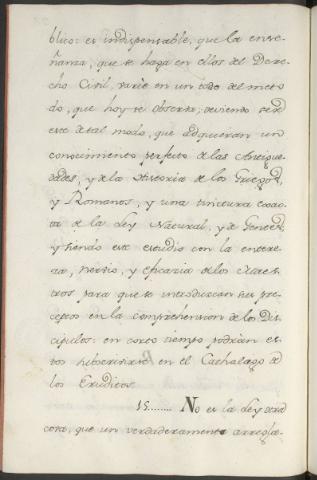 blico: es indispensable, que la ense-
ñanza, que se haga en ellos del Dere-
cho Civil, varìe en un todo del meto
do, que hoy se observa, deviendo ser
este de tal modo, que adquieran un
conocimiento perfecto de las Antigue-
dades, y de la Historia de los Griegos,
y Romanos, y una tinctura exac-
ta de la Ley Natural, y de Gentes,
y siendo este estudio con la entere-
za, nervio, y eficazia de los Maes-
tros para que se introduzcan sus pre-
ceptos en la comprehension de los Dis-
cipulos: en corto tiempo podràn es-
tos subscrivirse en el Cathalago de
los Eruditos.
15........ No es la Ley otra
cosa, que un verdaderamente arregla-